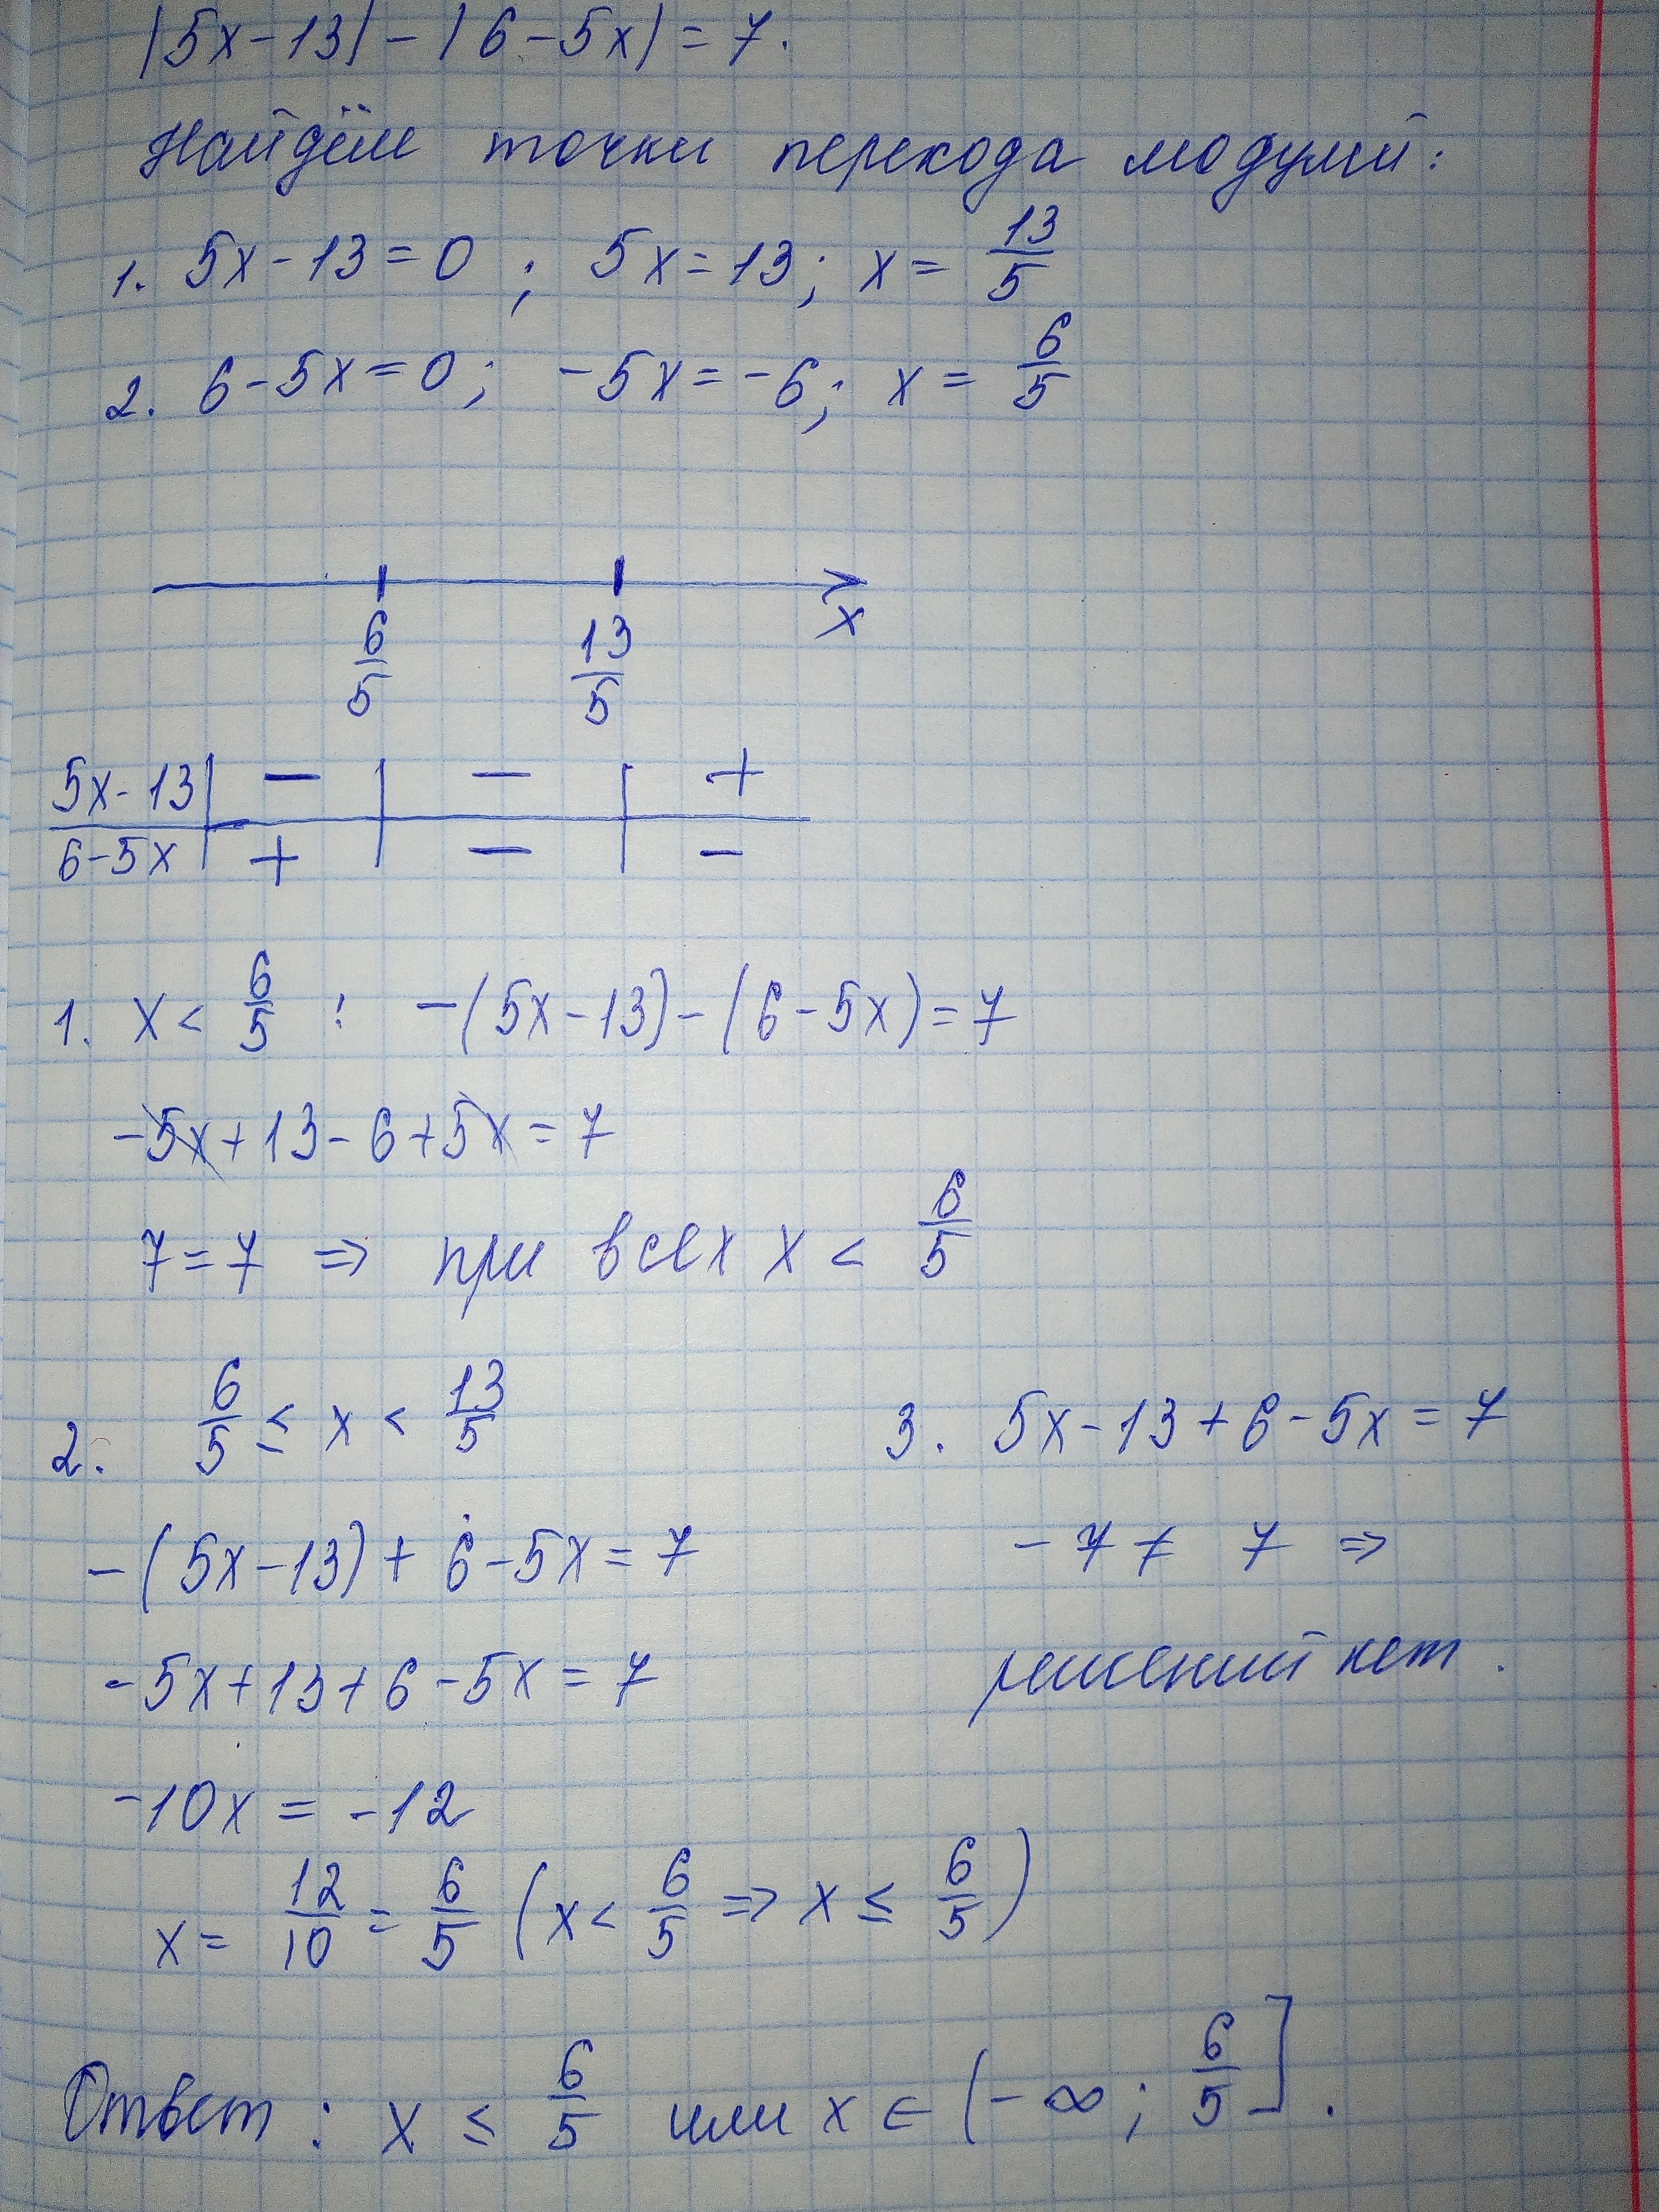 |5x-13| - |6-5x| = 7.
Найдём точки перехода модулей:
1. 5x-13=0 ; 5x=13; x= 13/5
2. 6-5x=0; -5x=-6; x= 6/5
6/5 13/5 x
5x-13 | − | − | +
6-5x | + | − | −
1. x < 6/5 : -(5x-13)-(6-5x)=7
-5x+13-6+5x=7
7=7 ⇒ при всех x < 6/5
2. 6/5 ≤ x < 13/5
-(5x-13)+6-5x=7
-5x+13+6-5x=7
-10x = -12
x= 12/10 = 6/5 (x< 6/5 ⇒ x ≤ 6/5)
3. 5x-13+6-5x=7
-7 ≠ 7 ⇒
решений нет.
Ответ: x ≤ 6/5 или x ∈ (-∞; 6/5].